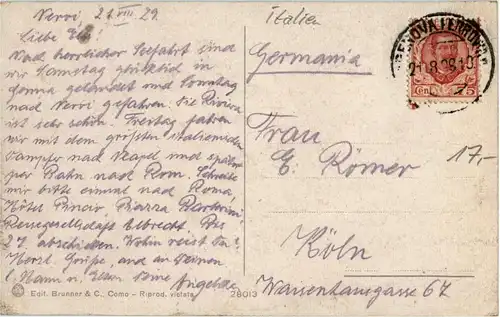 Nervi, 21.VIII.29.
Liebe Elli!
Nach herrlicher Seefahrt sind
wir Samstag glücklich in
Genua gelandet und Sonntag
nach Nervi gefahren. Die Riviera
ist sehr schön. Freitag fahren
wir mit dem größten italienischen
Dampfer nach Neapel und später
per Bahn nach Rom. Schreibe
mir bitte einmal nach Roma,
Hôtel Piazza
Reisegesellschaft Albrecht. Bis
27. abschicken. Wohin reist Du?
Herzl. Grüße, auch an Deinen
l. Mann u. Eltern. Deine
Edit. Brunner & C., Como - Riprod. vietata
28013
Italien
Germania
Frau
E. Römer
Köln
Waisenhausgasse 67
GENOVA FERROVIA
21.8.
Cen 75
17.-